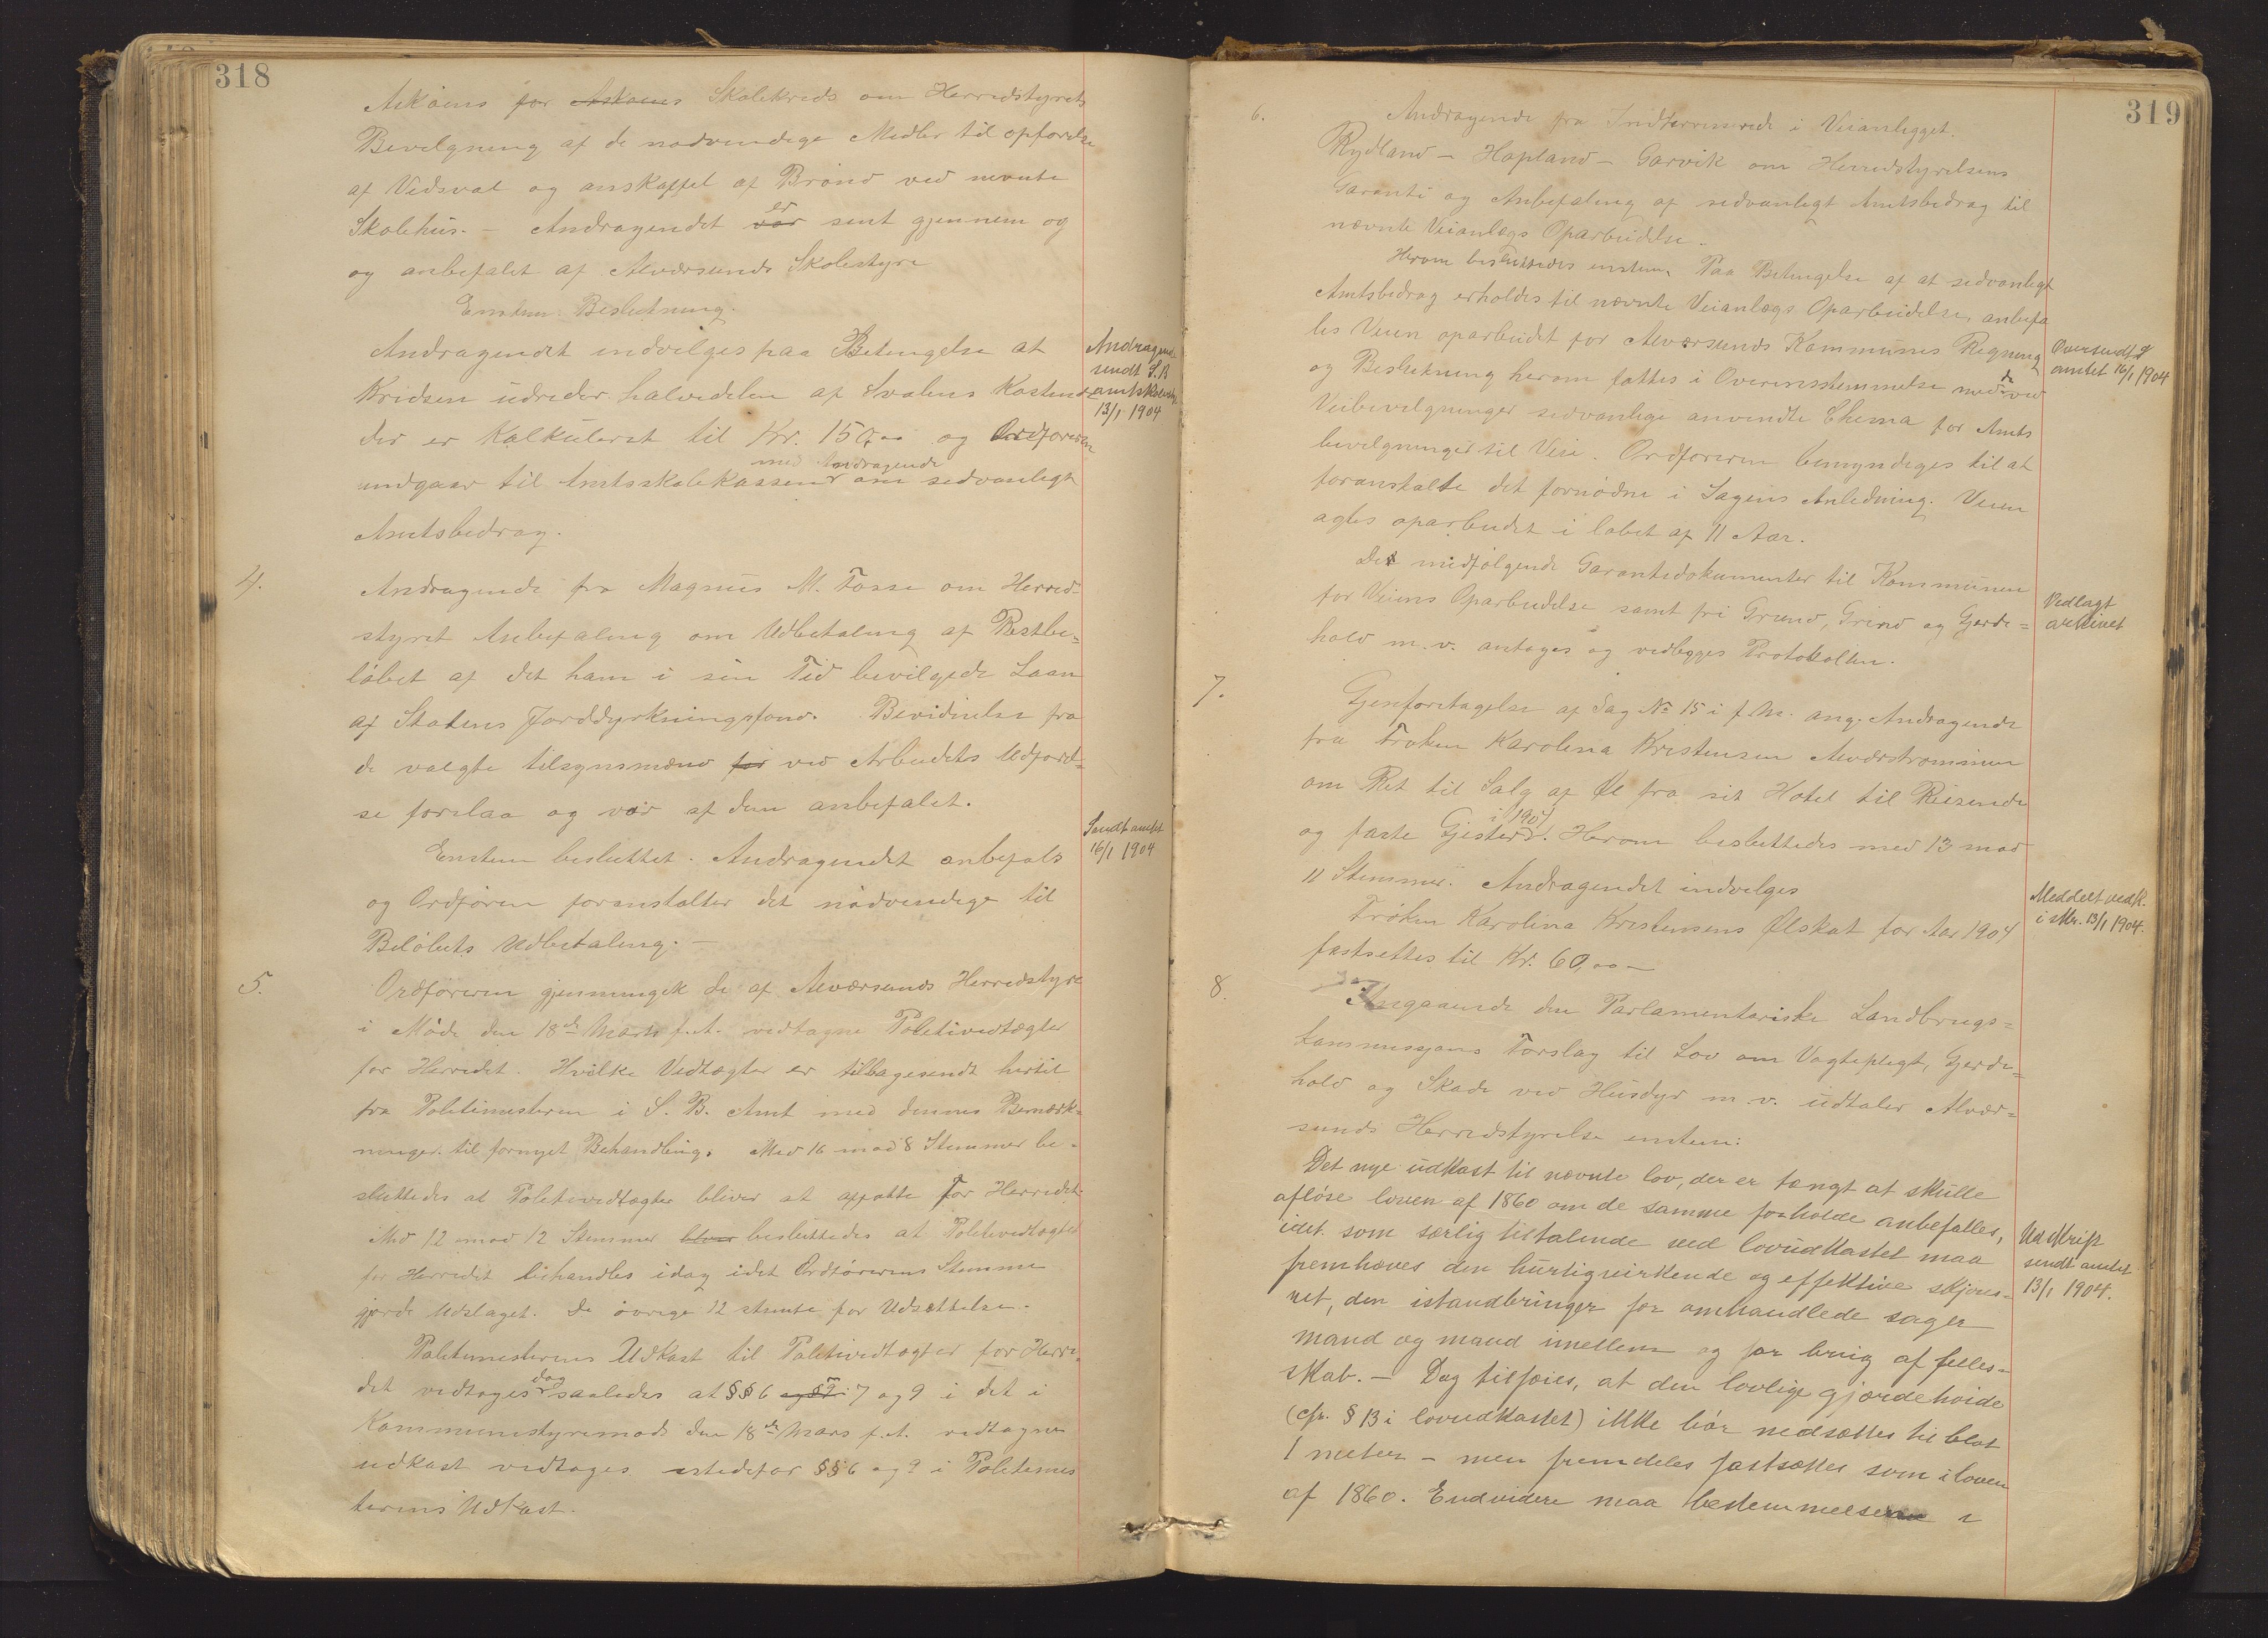 318
Askøens for Askøens Skolekreds om Herredstyrets
Bevilgning af de nødvendige Midler til opførelse
af Vedsval og anskaffel af Brønd ved nevnte
Skolehus. – Andragendet var er sent gjennem og
og anbefalet af Alversunds Skolestyre
Enstem. Beslutning.
Andragendet indvilges paa Betingelse at
Kridsen udreder halvedelen af Svalens Kostende
der er Kalkuleret til Kr. 150,00 og Ordføreren
indgaar til Amtsskolekassen med Andragende om sedvanligt
Amtsbedrag.
Andragend.
sendt S.B
amtskolest.
13/1 1904
4.
Andragende fra Magnus M. Fosse om Herred-
styret Anbefaling om Udbetaling af Restbe-
løbet af det ham i sin Tid bevilgede Laan
af Statens Jorddyrkningsfond. Bevidnelse fra
de valgte tilsynsmænd for ved Arbeidets Udførel-
se forelaa og var af dem anbefalet.
Enstem besluttet. Andragendet anbefals
og Ordføren foranstalter det nødvendige til
Beløbets Udbetaling. –
Sendt amtet
16/1 1904
5.
Ordføreren gjennemgik de af Alværsunds Herredstyre
i Møde den 18de Marts f.A. vedtagne Politivedtægter
for Herredet. Hvilke Vedtægter er tilbagesendt hertil
fra Politimesteren i S. B. Amt med dennes Bemærk-
ninger til fornyet Behandling. Med 16 mod 8 Stemmer be-
sluttedes at Politivedtægter bliver at oprette for Herredet.
Med 12 mod 12 Stemmer blev besluttedes at Politivedtægter
for Herredet behandles idag idet Ordførerens Stemme
gjorde Udslaget. De øvrige 12 stemte for Udsættelse.
Politimesterens Udkast til Politivedtægter for Herre-
det vedtoges dog saaledes at §§ 6 og § 9 7 og 9 i det i
Kommunestyremøde den 18de Mars f.A. vedtagne
udkast vedtages istedefor §§ 6 og 9 i Politimes
terens Udkast.
319
6.
Andragende fra Indterreserede i Veianlegget.
Rydland – Hopland – Garvik om Herredstyrelsens
Garanti og Anbefaling af sedvanligt Amtsbedrag til
nævnte Veianlægs Oparbeidelse.
Herom besluttedes enstem. Paa Betingelse af at sedvanligt
Amtsbedrag erholdes til nævnte Veianlægs Oparbeidelse, anbefa
les Veien oparbeidet for Alværsunds Kommunes Regning
og Beslutning herom fattes i Overensstemmelse med de ved
Veibevilgninger sedvanlige anvendte Skema for Amts
bevilgninger til Veie. Ordføreren bemyndiges til at
foranstalte det fornødne i Sagens Anledning. Veien
agtes oparbeidet i løbet af 11 Aar.
De medfølgende Garantidokumenter til Kommunen
for Veiens Oparbeidelse samt fri Grund, Grind og Gjerde-
hold m.v. antages og vedlegges Protokollen.
Oversendt S
amtet 16/1 1904
Vedlagt
arkivet
7.
Gjenforetagelse af Sag No 15 i f.M. ang. Andragende
fra Frøken Karolina Kristensen Alværstrømmen
om Ret til Salg af Øl fra sit Hotel til Reisende
og faste Gjester i 1904. Herom besluttedes med 13 mod
11 Stemmer. Andragendet indvelges
Frøken Karolina Kristensens Ølskat for Aar 1904
fastsettes til Kr. 60,00 –
Meddelt vedk.
i skr. 13/1 1904.
8.
Angaaende den Parlamentariske Landbrugs-
kommissjons Forslag til Lov om Vogtepligt, Gjerde-
hold og Skade ved Husdyr m.v. udtaler Alver-
sunds Herredstyrelse enstem:
Det nye udkast til nævnte lov, der er tængt at skulle
afløse loven af 1860 om de samme forholde anbefalles,
idet som særlig tiltalende ved lovudkastet maa
fremhæves den hurtigvirkende og effektive skjøns-
ret, den istandbringer for omhandlede sager
mand og mand imellem og for brug af felles-
skab. – Dog tilføies, at den lovlige gjærdehøide
(cfr. § 13 i lovudkastet) ikke bør nedsættes til blot
1 meter – men fremdeles fastsættes som i loven
af 1860. Endvidere maa bestemmelserne i
Udskrift
sendt amtet
13/1 1904.